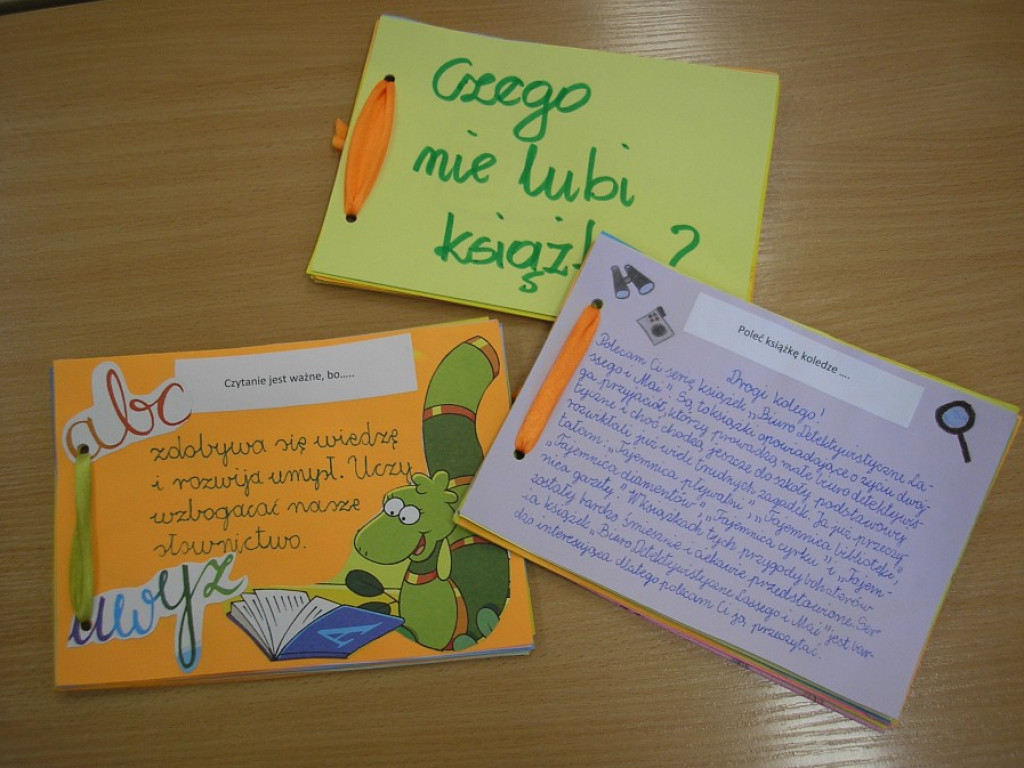 Czego
nie lubi
książk ?
Czytanie jest ważne, bo.....
abc
zdobywa się wiedzę
i rozwija umysł. Uczy
wzbogacać nasze
słownictwo.
uwyz
A
Poleć książkę koledze ....
Drogi kolego!
Polecam Ci serię książek „Biuro Detektywistyczne La-
ssego i Mai". Są to książki opowiadające o życiu dwój-
ga przyjaciół, którzy prowadzą małe biuro detektywis-
tyczne i choć chodzą jeszcze do szkoły podstawowej
rozwikłali już wiele trudnych zagadek. Ja już przeczy-
tałam: „Tajemnica pływalni", „Tajemnica biblioteki",
„Tajemnica diamentów", „Tajemnica cyrku" i „Tajem-
nica gazety". W książkach tych przygody bohaterów
zostały bardzo śmiesznie i ciekawie przedstawione. Ser
ia książek „Biuro Detektywistyczne Lassego i Mai" jest bar-
dzo interesująca dlatego polecam Ci ją przeczytać.